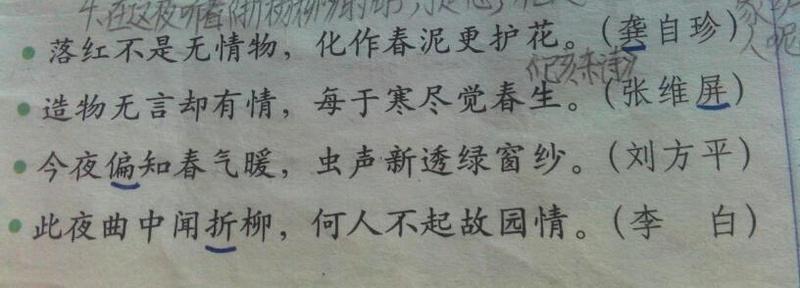 落红不是无情物，化作春泥更护花。（龚自珍）
《己亥杂诗》
造物无言却有情，每于寒尽觉春生。（张维屏）
今夜偏知春气暖，虫声新透绿窗纱。（刘方平）
此夜曲中闻折柳，何人不起故园情。（李 白）